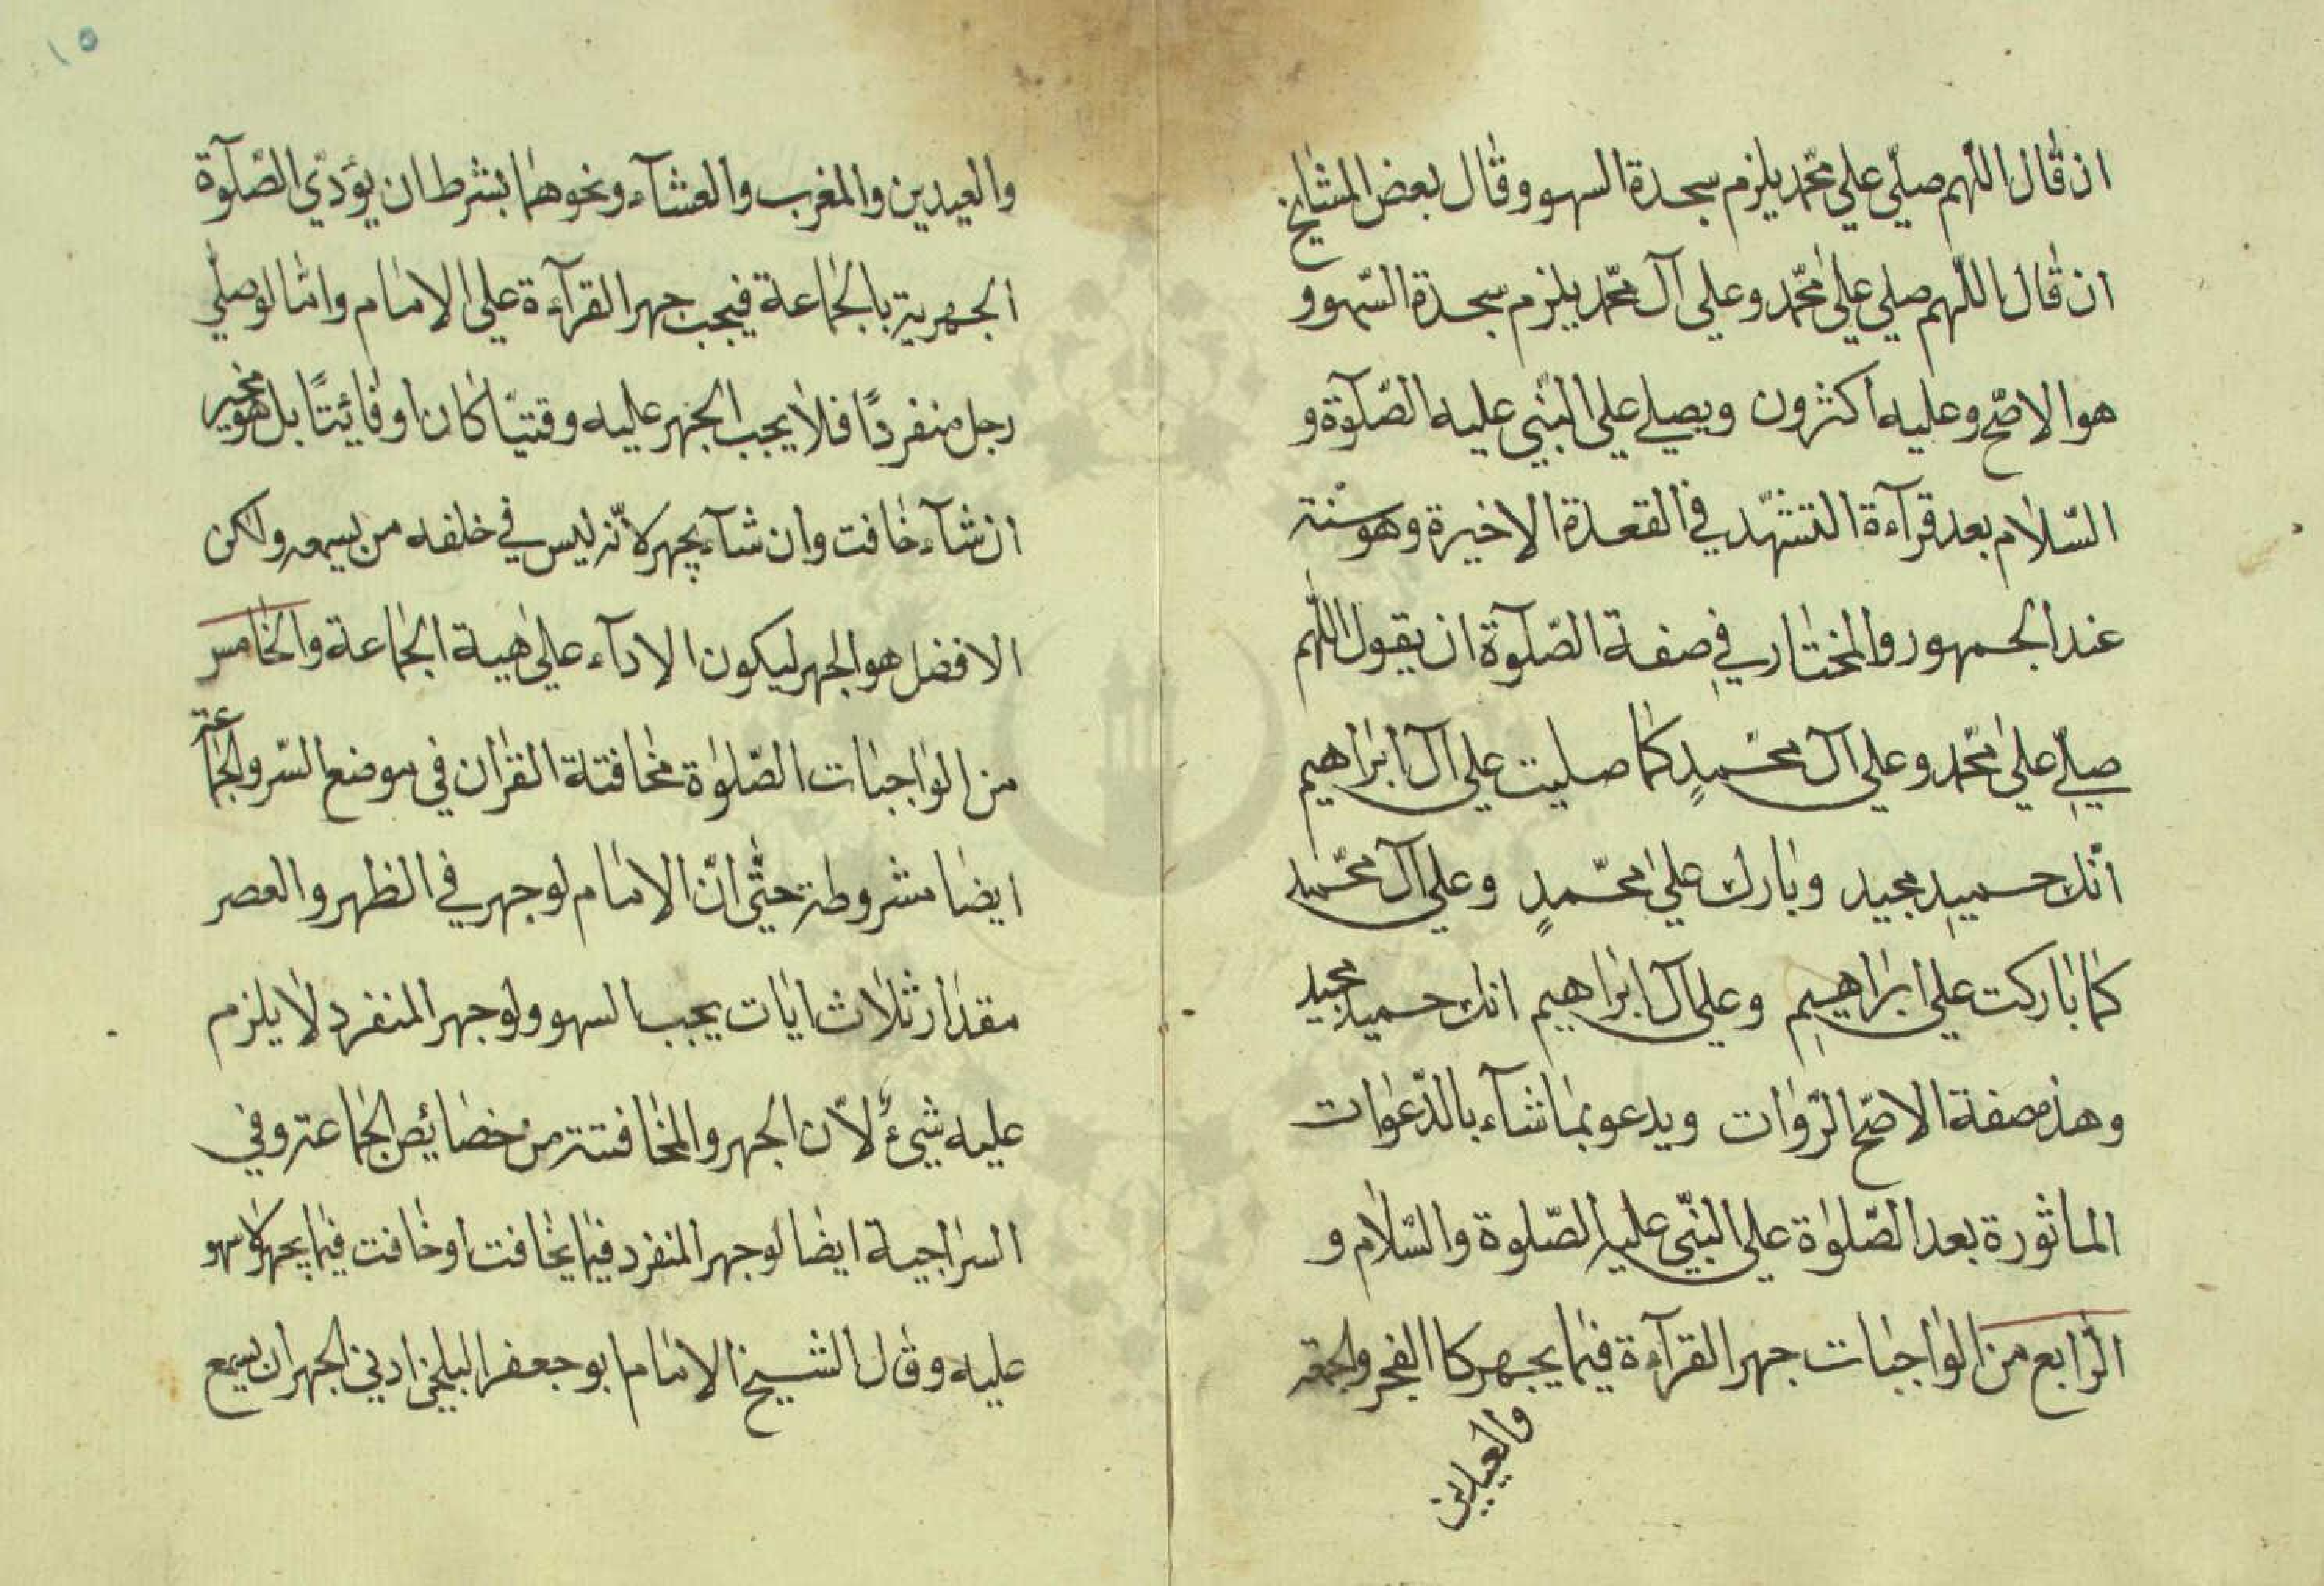 ان قال اللّهم صلّي علي محمّد يلزم سجدة السهو وقال بعض المشايخ
ان قال اللّهم صلي علي محمّد وعلي آل محمّد يلزم سجدة السّهو و
هو الاصّح وعليه اكثرون ويصلي علي النبّي عليه الصّلوة و
السّلام بعد قرآءة التشهّد في القعدة الاخيرة وهو سنة
عند الجمهور والمختار في صفة الصّلوة ان يقول اللّهم
صلّي علي محمّد وعلي آل محمّدٍ كما صليت علي آل ابراهيم
انّك حميد مجيد وبارك علي محمّدٍ وعلي آل محمّد
كما باركت علي ابراهيم وعلي آل ابراهيم انك حميد مجيد
وهذه صفة الاصّح الرّوات ويدعو بما شآء بالدّعوات
الماثورة بعد الصّلوة علي النبّي عليه الصّلوة والسّلام و
الرّابع من الواجبات جهر القرآءة فيما يجهر كا الفجر والجمعة
والعيدين
١٥
والعيدين والمغرب والعشآء ونحوهما بشرط ان يؤدّي الصّلوة
الجهرية بالجماعة فيجب جهر القرآءة علي الامام وامّا لو صلّي
رجل منفردًا فلا يجب الجهر عليه وقتيّا كان او فائيتًا بل هو مخير
ان شآء خافت وان شآء يجهر لانّه ليس في خلفه من يسمعه ولكن
الافضل هو الجهر ليكون الادآء علي هية الجماعة والخامس
من الواجبات الصّلوة مخافتة القران في موضع السّر والجماعة
ايضا مشروطة حتّي انّ الامام لو جهر في الظهر والعصر
مقدار ثلاث ايات يجب السهو ولو جهر المنفرد لا يلزم
عليه شيئ لانّ الجهر والمخافتة من خصائص الجماعة وفي
السراجية ايضا لو جهر المنفرد فيما يخافت او خافت فيما يجهر لا سهو
عليه وقال الشيخ الامام ابو جعفر البلخي ادني الجهر ان يسمع